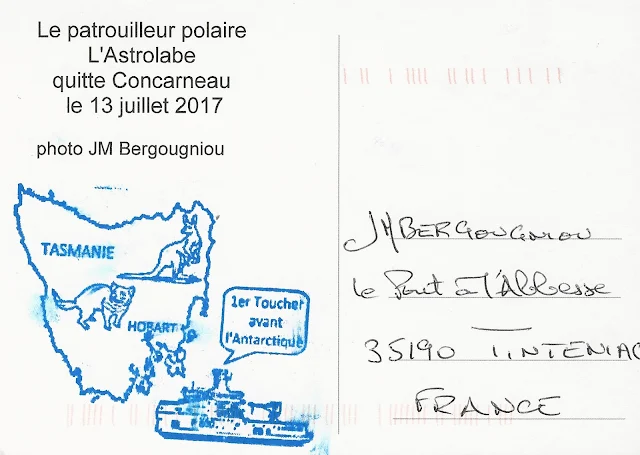 Le patrouilleur polaire
L'Astrolabe
quitte Concarneau
le 13 juillet 2017
photo JM Bergougniou
TASMANIE
HOBART
1er Toucher
avant
l'Antarctique
JM BERGOUGNIOU
le Pont à l'Abbesse
35190 TINTENIAC
FRANCE